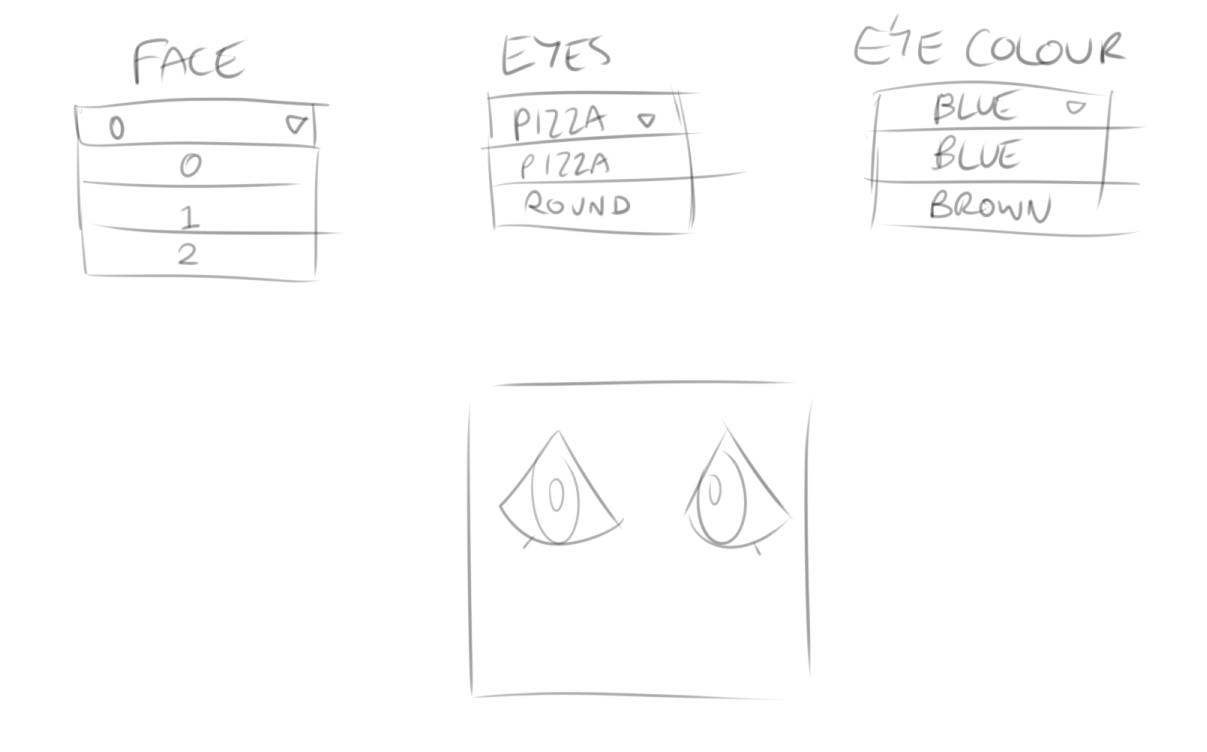 FACE
0
0
1
2
EYES
PIZZA
PIZZA
ROUND
EYE COLOUR
BLUE
BLUE
BROWN